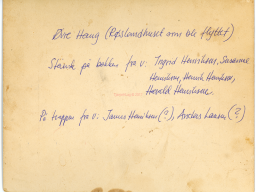 Øvre Haug (Røslandhuset som ble flyttet)
Stående på bakken fra v: Ingrid Henriksen, Susanne
Henriksen, Henrik Henriksen,
Harald Henriksen.
På trappen fra v.: James Henriksen (?), Anders Larsen (?)